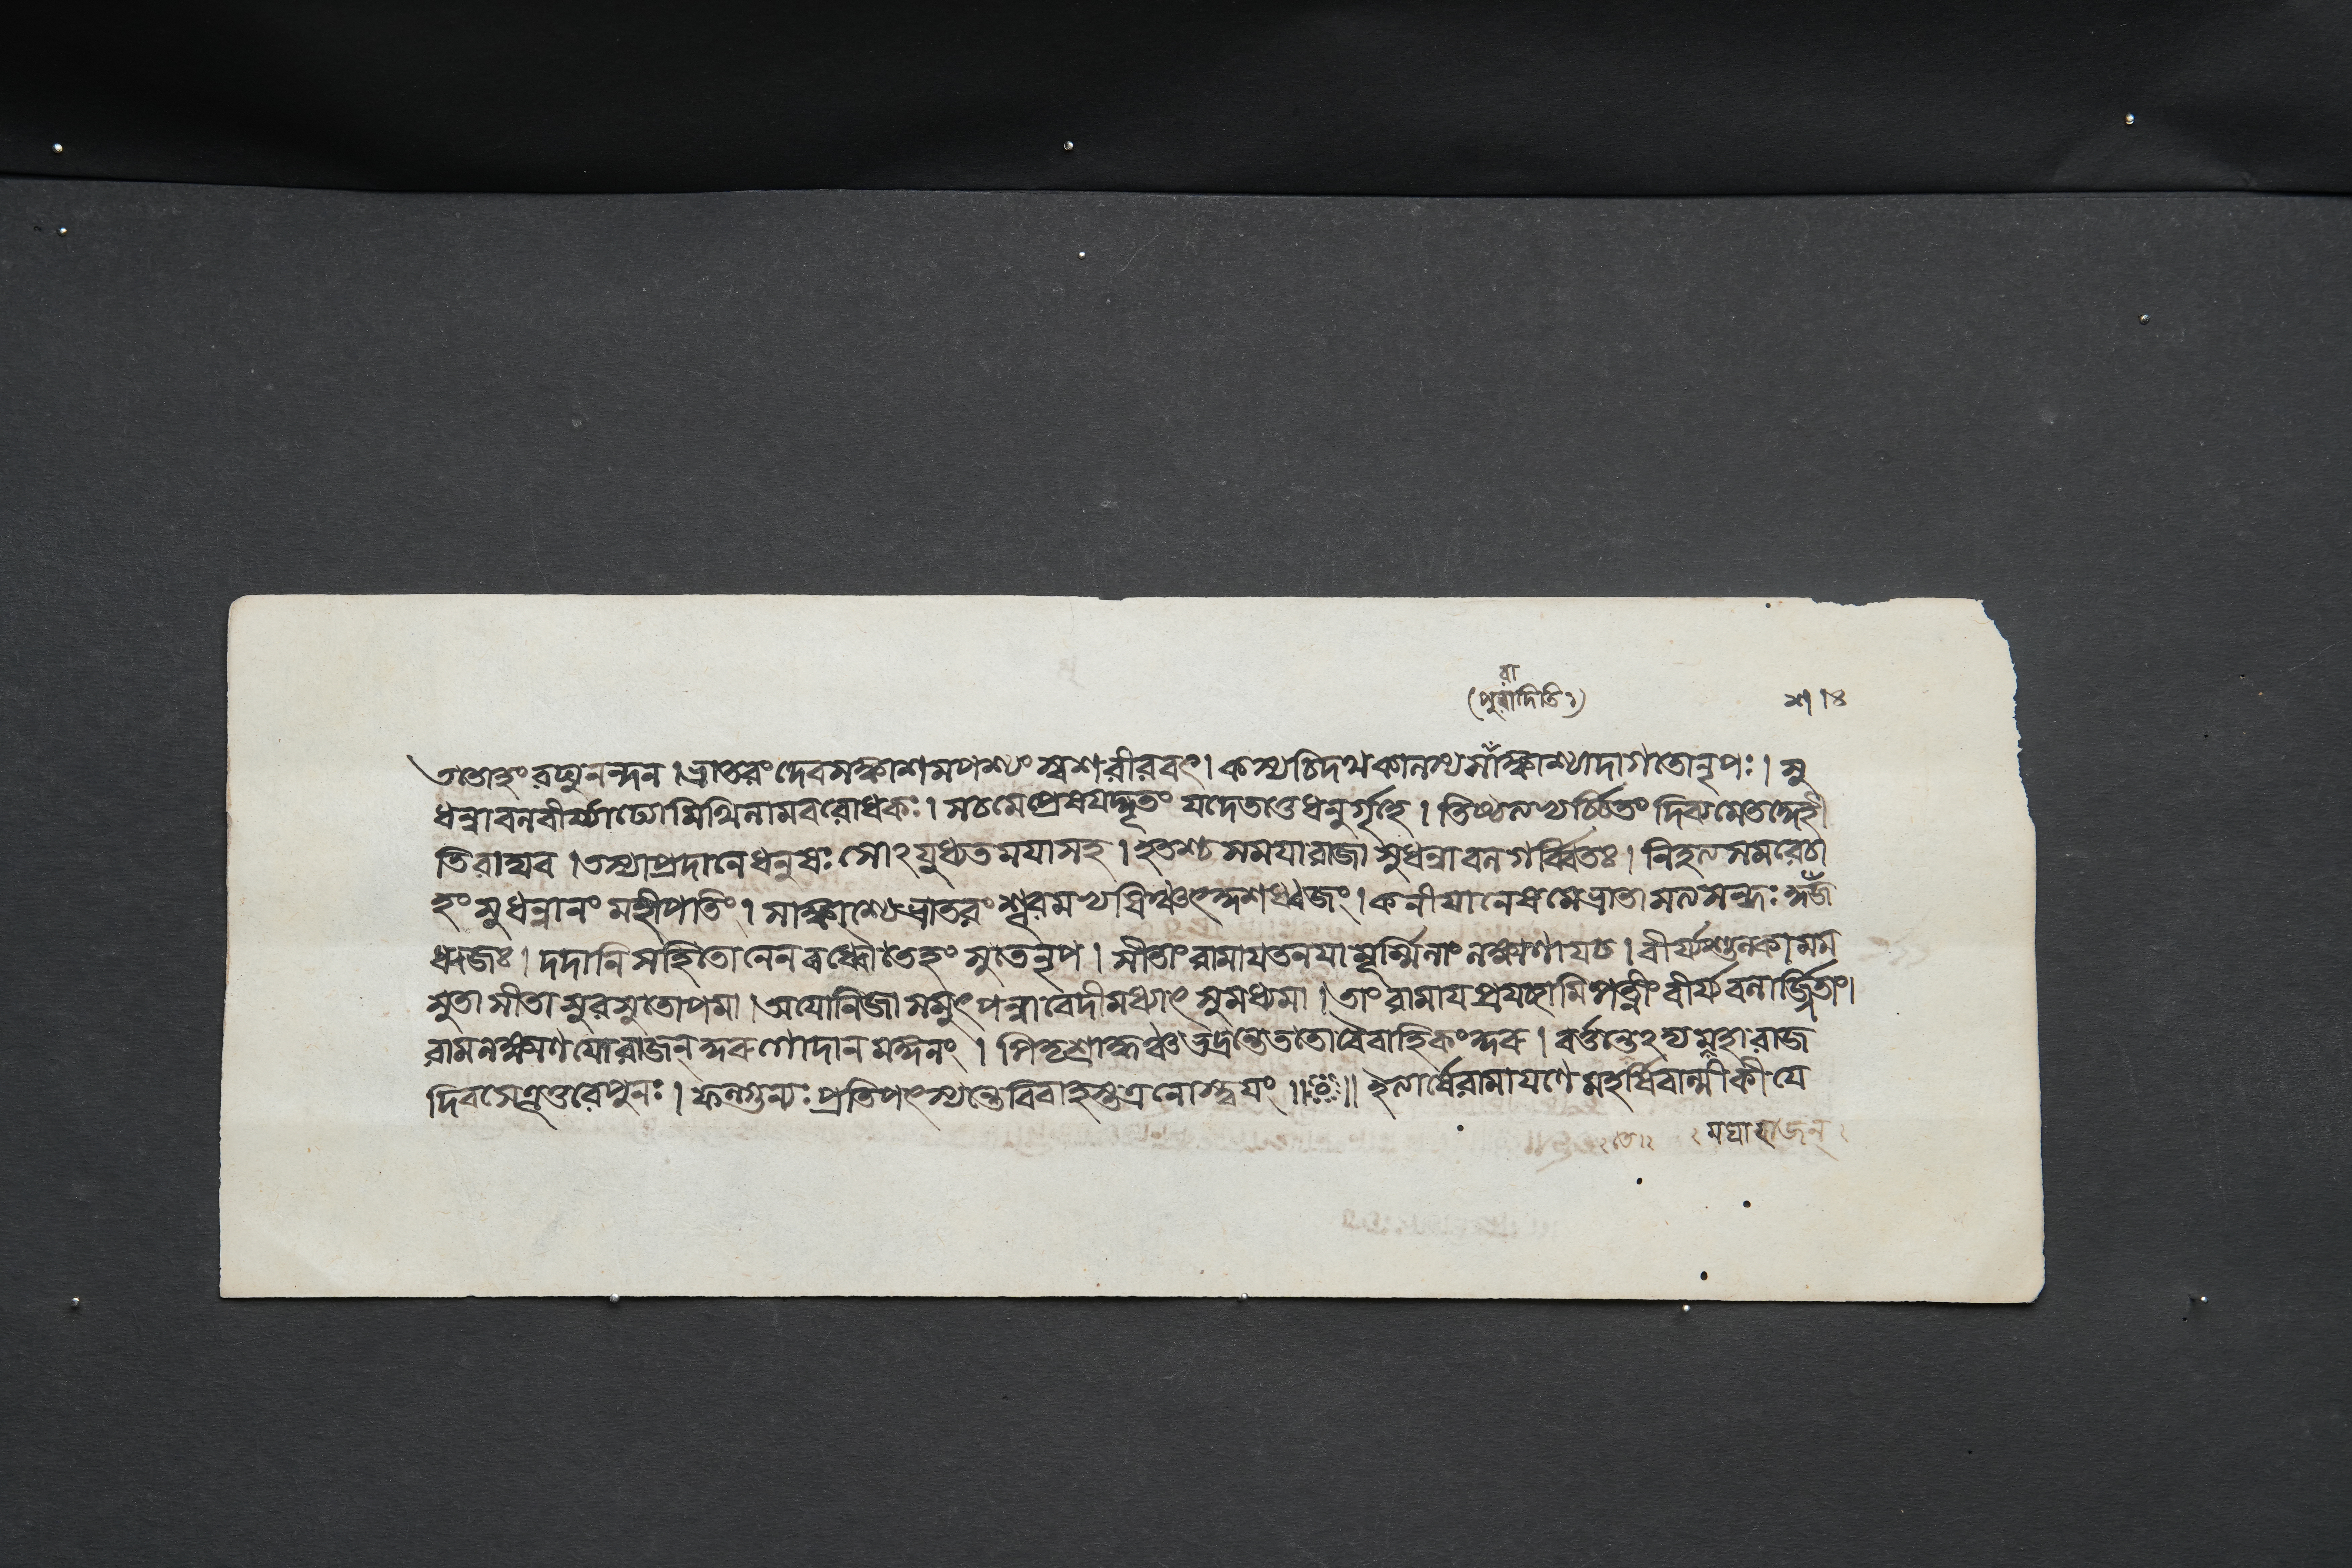 ততোহং রঘুনন্দন । ভ্রাতরং দেবসঙ্কাশমপশ্যং স্বশরীরবৎ । কস্যচিদথকালস্য সাঁঙ্কাশ্যাদাগতোনৃপঃ । সু
ধন্বাবলবীর্য্যাঢ্যোমিথিলামবরোধকঃ । সচমেপ্রেষয়দ্দূতং যদেতত্তেধনুর্গৃহে । তিষ্ঠত্যভ্যর্চ্চিতং দিব্যমেতদ্দেহী
তিরাঘব । তস্যাপ্রদানেধনুষঃ সোঽযুধ্যতময়াসহ । হতশ্চ সময়ারাজা সুধন্বাবলগর্ব্বিতঃ । নিহত্যসমরেচা
হং সুধন্বানং মহীপতিং । সাঙ্কাশ্যেভ্রাতরং শূরমভ্যষিঞ্চংকুশধ্বজং । কনীয়ানেষমেভ্রাতা সত্যসন্ধঃ
ধ্বজঃ । দদানি সহিতোনেন বধ্বৌতেহং সুতেনৃপ । সীতাং রামায়তনয়ামূর্ম্মিলাং লক্ষ্মণায়চ । বীর্য্যশুল্কামম
সুতা সীতা সুরসুতোপমা । অযোনিজা সমুৎপন্নাবেদীমধ্যাৎ সুমধ্যমা । তাং রামায়প্রযচ্ছামিপত্নীং বীর্য্যবলার্জ্জিতাং ।
রামলক্ষ্মণয়োরাজন্ কুরুগোদানমঙ্গলং । পিতৃশ্রাদ্ধঞ্চভদ্রন্তেততোবৈবাহিকংকুরু । বর্ত্তন্তেঽদ্যমহারাজ
দিবসেপ্যুত্তরেপুনঃ । ফল্গুন্যঃ প্রতিপৎস্যন্তেবিবাহস্তত্রনোস্ত্বয়ং ॥ ॥ ইত্যার্ষেরামায়ণে মহর্ষিবাল্মীকীয়ে
মঘারাজন্